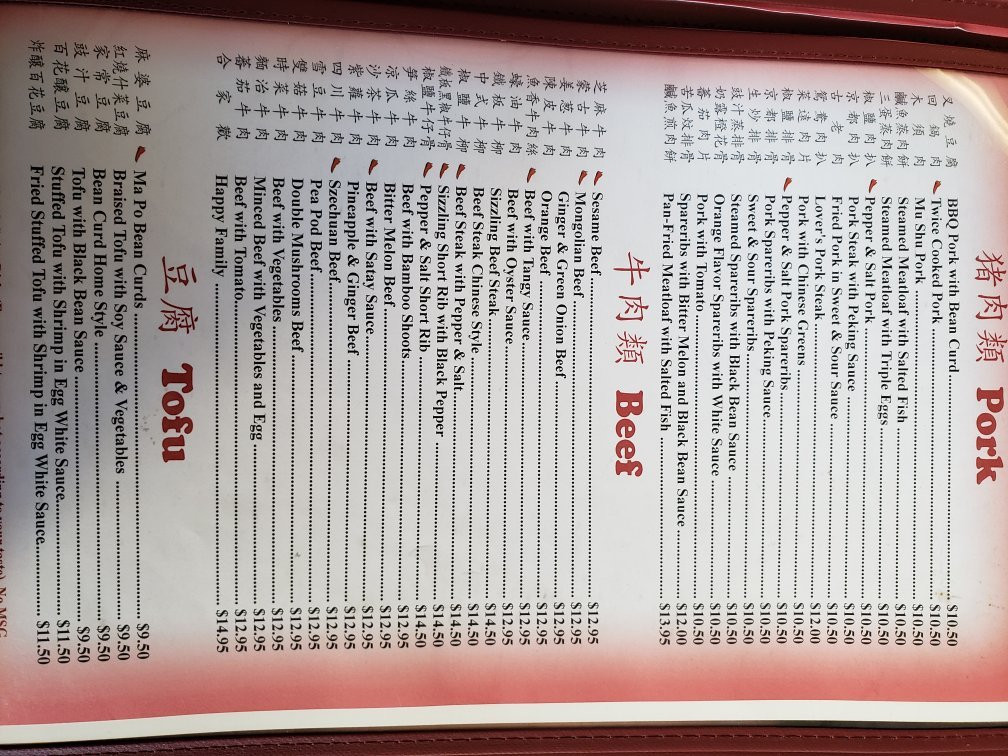 猪肉類 Pork
叉燒豆腐 BBQ Pork with Bean Curd $10.50
回鍋肉 Twice Cooked Pork $10.50
木須肉 Mu Shu Pork $10.50
鹹魚蒸肉餅 Steamed Meatloaf with Salted Fish $10.50
三蛋蒸肉餅 Steamed Meatloaf with Triple Eggs $10.50
椒鹽肉扒 Pepper & Salt Pork $10.50
京都肉扒 Pork Steak with Peking Sauce $10.50
古老肉 Fried Pork in Sweet & Sour Sauce $10.50
鴛鴦肉扒 Lover's Pork Steak $12.00
菜遠肉片 Pork with Chinese Greens $10.50
椒鹽排骨 Pepper & Salt Pork Spareribs $10.50
京都排骨 Pork Spareribs with Peking Sauce $10.50
生炒排骨 Sweet & Sour Spareribs $10.50
豉汁蒸排骨 Steamed Spareribs with Black Bean Sauce $10.50
奶露橙花骨 Orange Flavor Spareribs with White Sauce $10.50
蕃茄肉片 Pork with Tomato $10.50
苦瓜炆排骨 Spareribs with Bitter Melon and Black Bean Sauce $12.00
鹹魚煎肉餅 Pan-Fried Meatloaf with Salted Fish $13.95
牛肉類 Beef
芝麻牛肉 Sesame Beef $12.95
蒙古牛肉 Mongolian Beef $12.95
姜葱牛肉 Ginger & Green Onion Beef $12.95
陳皮牛肉 Orange Beef $12.95
魚香牛肉絲 Beef with Tangy Sauce $12.95
蠔油牛肉 Beef with Oyster Sauce $12.95
鐵板牛柳 Sizzling Beef Steak $14.50
中式牛柳 Beef Steak Chinese Style $14.50
椒鹽牛柳 Beef Steak with Pepper & Salt $14.50
鐵板黑椒牛仔骨 Sizzling Short Rib with Black Pepper $14.50
椒鹽牛仔骨 Pepper & Salt Short Rib $14.50
笋絲牛肉 Beef with Bamboo Shoots $12.95
涼瓜牛肉 Bitter Melon Beef $12.95
沙茶牛肉 Beef with Satay Sauce $12.95
紫蘿牛肉 Pineapple & Ginger Beef $12.95
四川牛肉 Szechuan Beef $12.95
雪豆牛肉 Pea Pod Beef $12.95
雙菇牛肉 Double Mushrooms Beef $12.95
時菜牛肉 Beef with Vegetables $12.95
緬治牛肉 Minced Beef with Vegetables and Egg $12.95
蕃茄牛肉 Beef with Tomato $12.95
合家歡 Happy Family $14.95
豆腐 Tofu
麻婆豆腐 Ma Po Bean Curds $9.50
紅燒什菜豆腐 Braised Tofu with Soy Sauce & Vegetables $9.50
家常豆腐 Bean Curd Home Style $9.50
豉汁豆腐 Tofu with Black Bean Sauce $9.50
百花釀豆腐 Stuffed Tofu with Shrimp in Egg White Sauce $11.50
炸釀百花豆腐 Fried Stuffed Tofu with Shrimp in Egg White Sauce $11.50
to your taste). No MSG